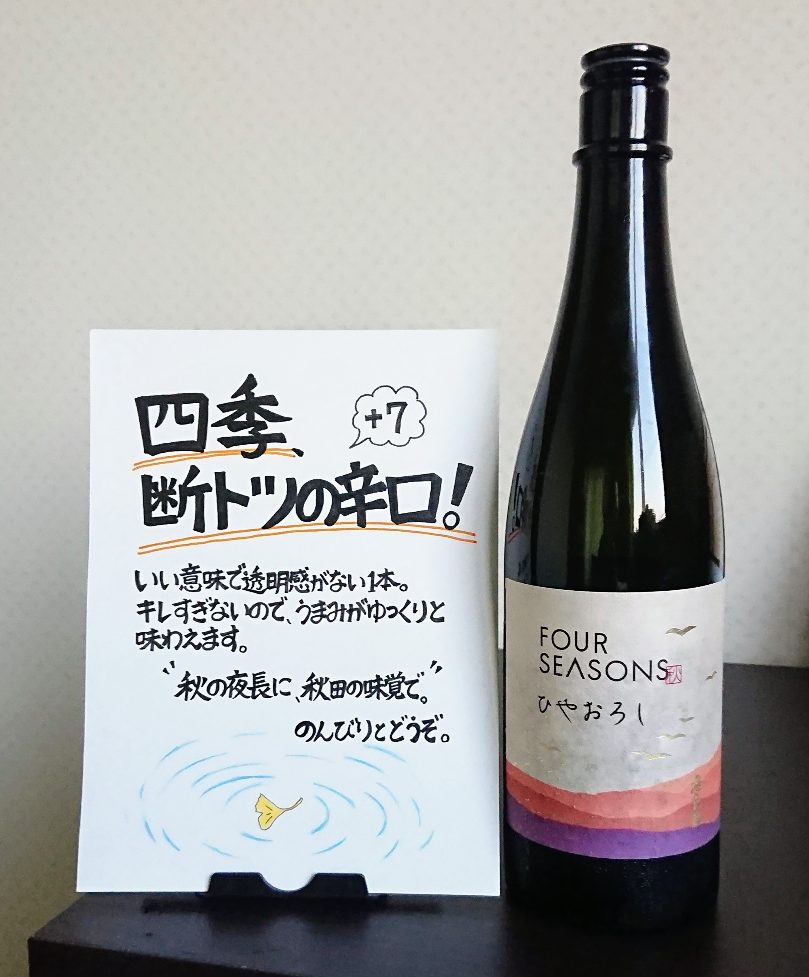 四季、
+7
断トツの辛口!
いい意味で透明感がない1本。
キレすぎないので、うまみがゆっくりと
味わえます。
"秋の夜長に、秋田の味覚で。"
のんびりとどうぞ。
FOUR
SEASONS 秋
ひやおろし